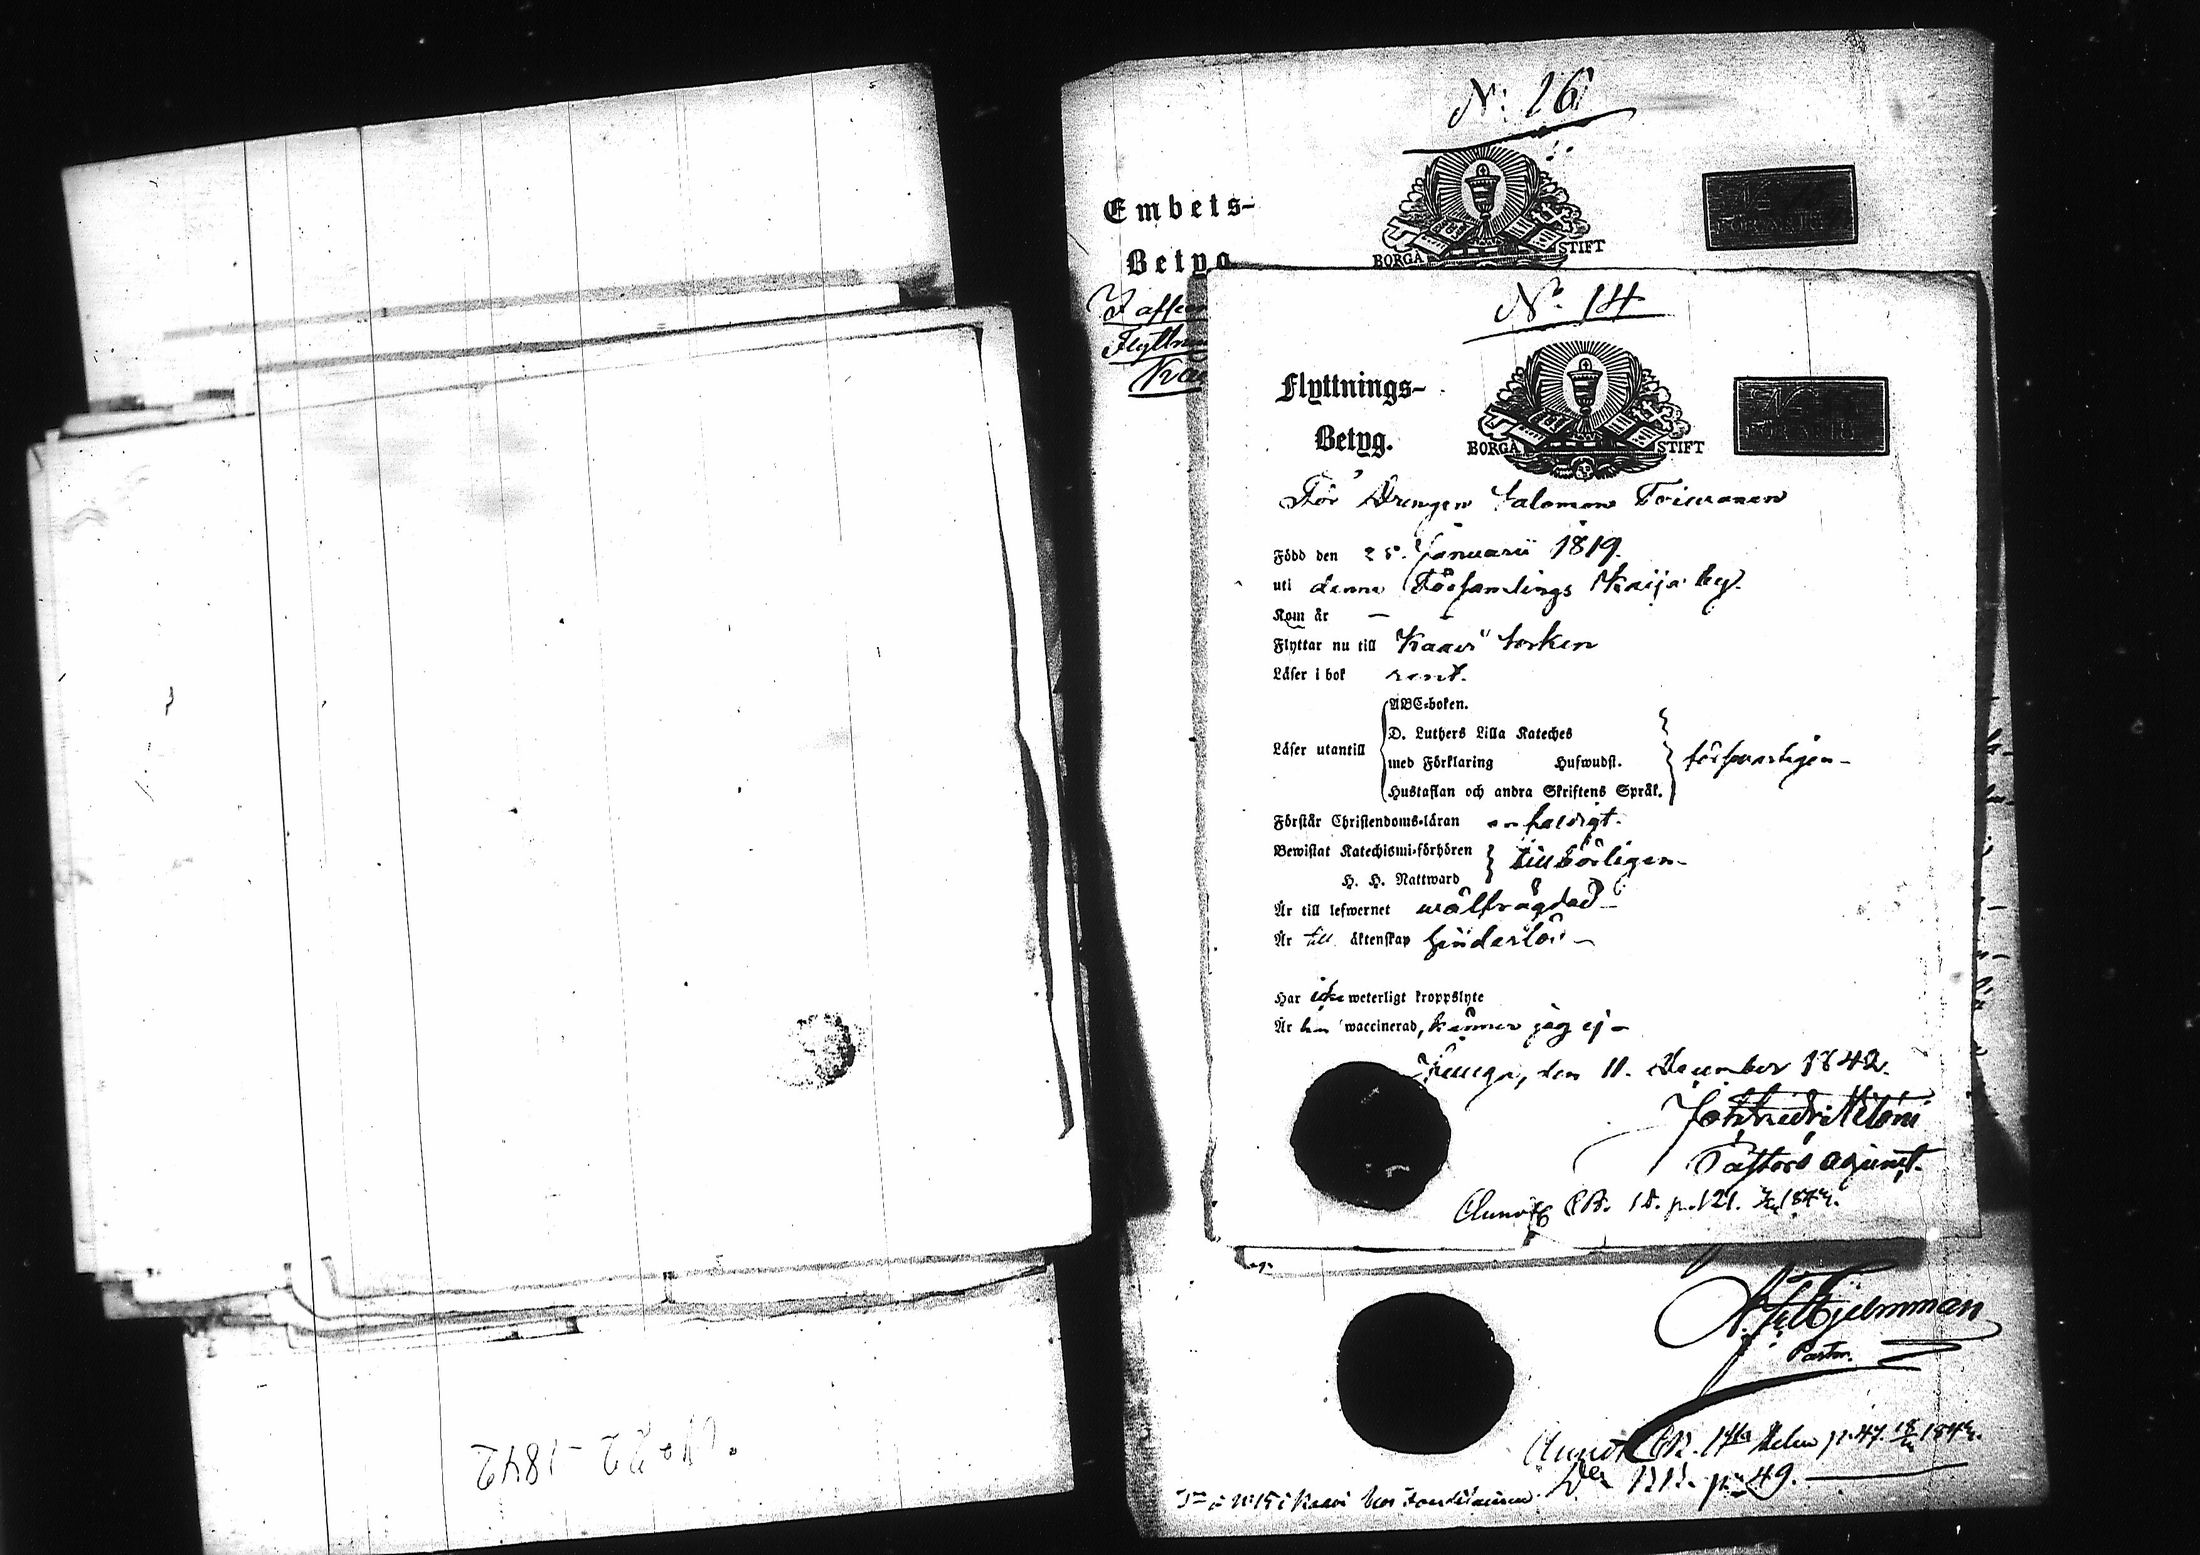 N: 16
BORGÅ STIFT
Embets-
Betyg
Flyttn
N:o 14
Flyttnings-
Betyg.
BORGÅ STIFT
För Drengen Salomon Toiwanen
Född den 25. Januarii 1819.
uti denna Församlings by.
Kom år —
Flyttar nu till Kaavi Socken
Läser i bok rent.
Läser utantill
ABC-boken.
D. Luthers Lilla Kateches
med Förklaring Hufwudst.
Hustaflan och andra Skriftens Språk.
försvarligen
Förstår Christendoms-läran enfaldigt.
Bewistat Katechismi-förhören
H. H. Nattward
tillbörligen
Är till lefwernet wälfrägdad
Är till äktenskap hinderlös
Har icke weterligt kroppslyte
Är han waccinerad, känner jag ej
den 11. December 1842.
Pastors adjunct.
p. 121. 1842.
Hjelmman
Pastor.
p. 47. 1842.
p. 49.
No 22 - 1842